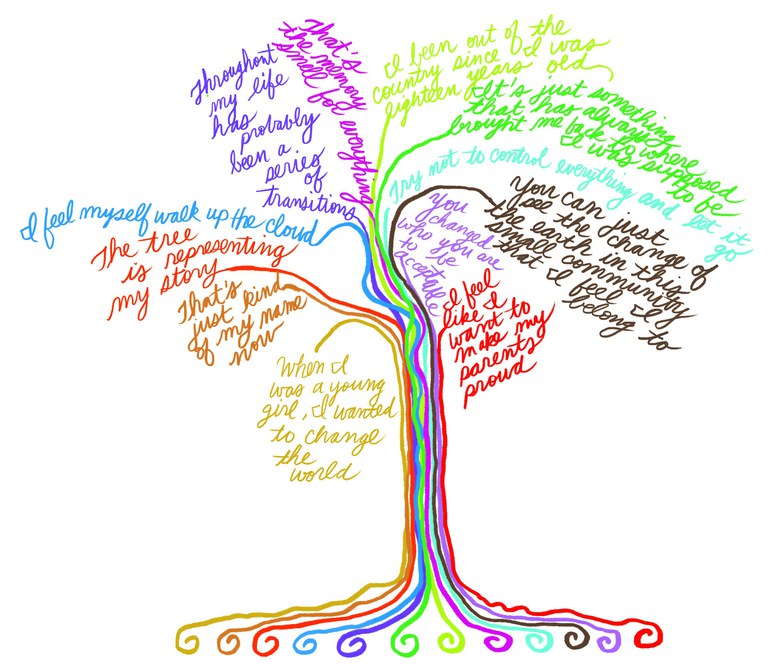 Throughout
my life
has
probably
been a
series
of
transitions
That's
the memory
smell for everything
I been out of the
country since I was
eighteen years old
It's just something
that has always
brought me back to where
I was supposed
to be
Try not to control everything and let it
go
I feel myself walk up the cloud
The tree
is representing
my story
That's
just kind
of my name
now
When I
was a young
girl, I wanted
to change
the
world
You
changed
who you are
to be
acceptable
I feel
like I
want to
make my
parents
proud
You can just
see the change of
the earth in this
small community
that I feel I
belong to